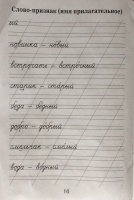 Слово-признак (имя прилагательное)
ый
новинка – новый
встречать – встречный
старик – старый
беда – бедный
добро – добрый
смельчак – смелый
вода – водный
10